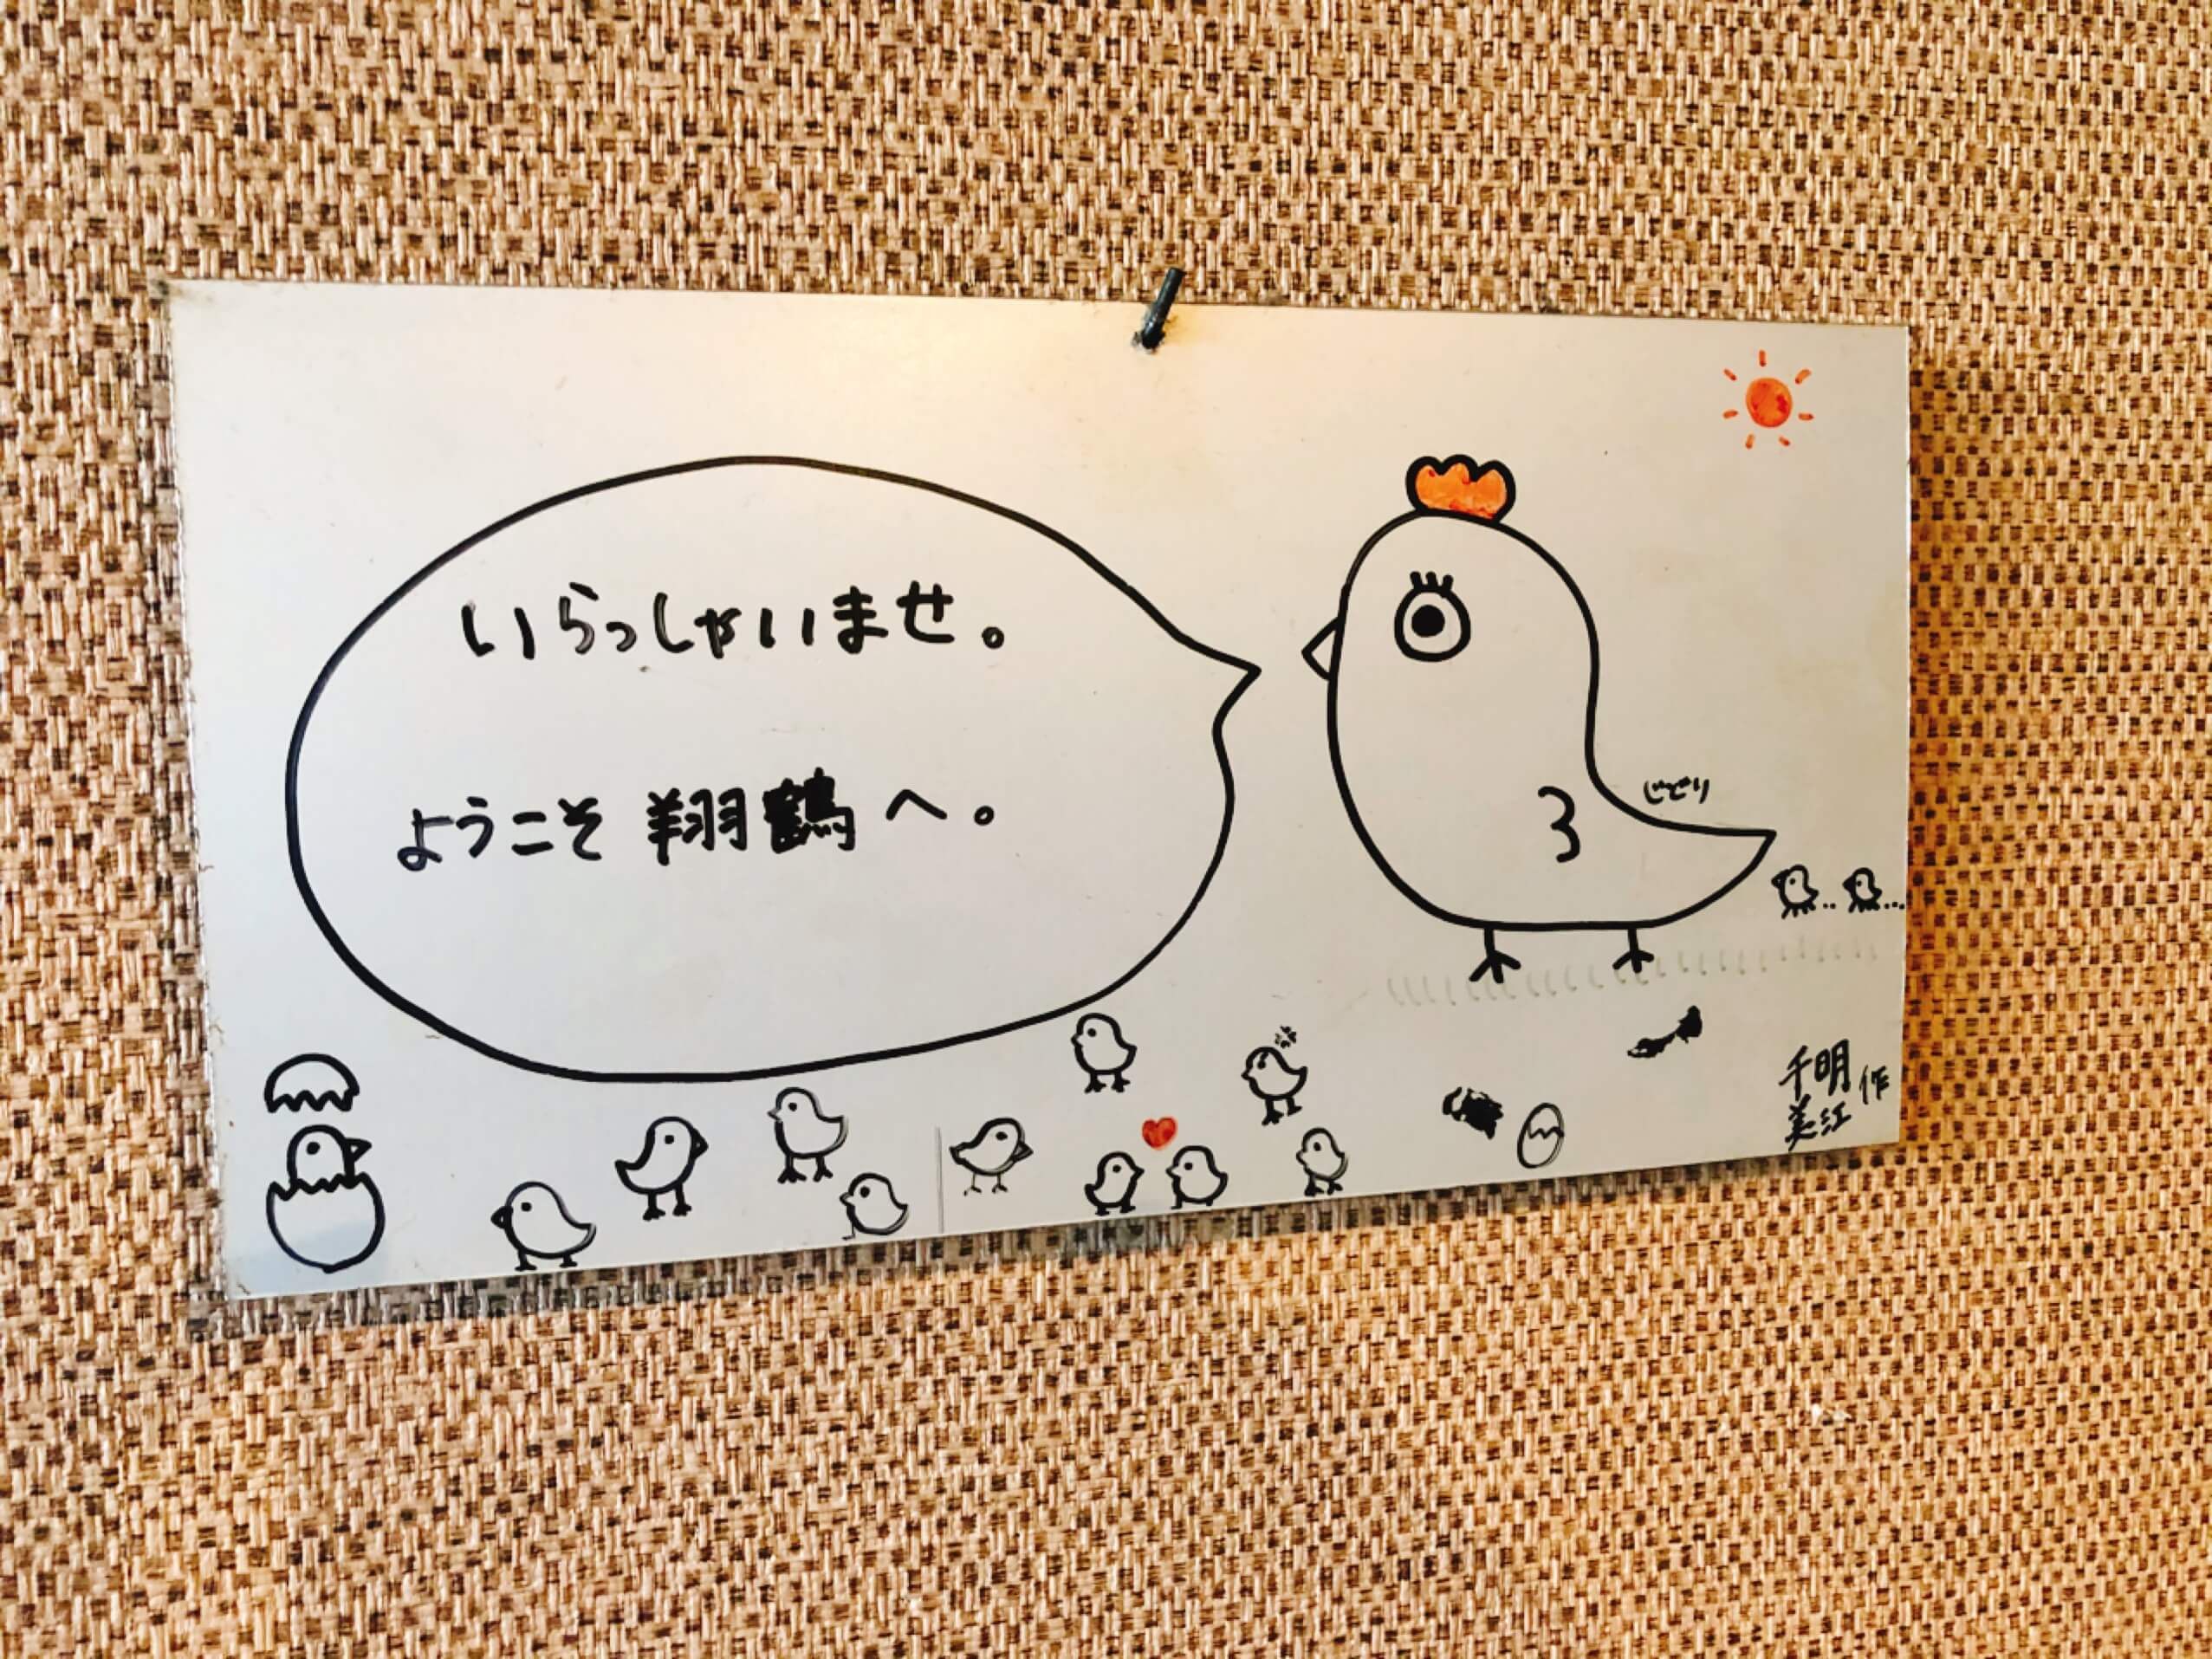 いらっしゃいませ。
ようこそ 翔鶴 へ。
じどり
千明
美江 作